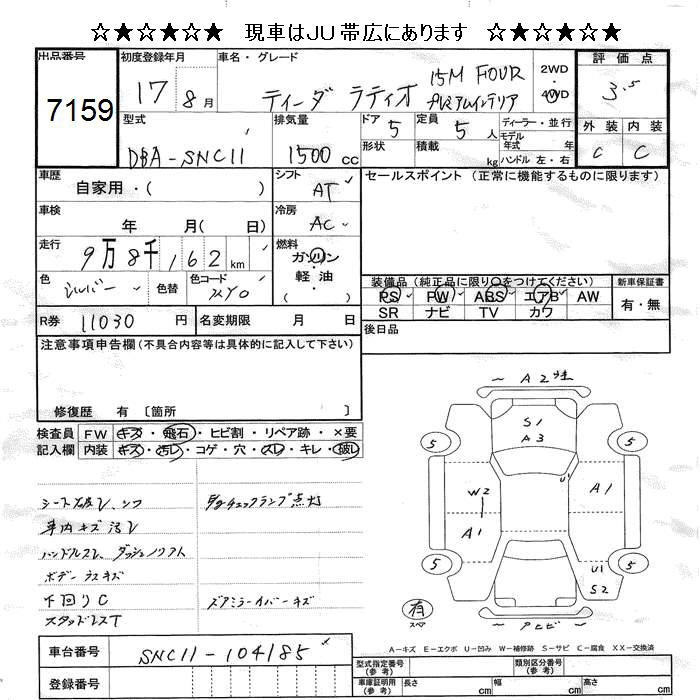 ☆★☆★☆★ 現車はJU帯広にあります ☆★☆★☆★
出品番号 初度登録年月 車名・グレード 評価点
7159 17 8月 ティーダ ラティオ 15M FOUR プレミアムインテリア 2WD・4WD 3.5
型式 排気量 ドア 5 定員 5人 ディーラー・並行 外装 内装
DBA-SNC11 1500cc 形状 積載 kg モデル年式 年 ハンドル 左・右 C C
車歴 自家用・( ) シフト AT セールスポイント (正常に機能するものに限ります)
車検 年 月( 日) 冷房 AC
走行 9万8千162km 燃料 ガソリン・軽油・( )
色 シルバー 色替 色コード KY0
装備品 (純正品に限り○をつけてください) 新車保証書
PS PW ABS エアB AW 有・無
SR ナビ TV カワ
R券 11030円 名変期限 月 日 後日品
注意事項申告欄(不具合内容等は具体的に記入して下さい)
修復歴 有 〔箇所 〕
検査員 FW キズ・飛石・ヒビ割・リペア跡・×要
記入欄 内装 キズ・汚レ・コゲ・穴・スレ・キレ・破レ
シート破レ、シワ
チェックランプ点灯
車内キズ汚レ
ハンドルスレ、ダッシュノリアト
ボデーラスキズ
下回りC
ズアミラーカバーキズ
スタッドレスT
A2
S1
A3
5 5
U1
W2 A1
A1
5 5
U1
S2
有
スペア
アヒビ
A-キズ E-エクボ U-凹み W-補修跡 S-サビ C-腐食 XX-交換済
車台番号 SNC11-104185
型式指定番号(参考) 類別区分番号(参考)
登録番号 車庫証明用(参考) 長さ cm 幅 cm 高さ cm